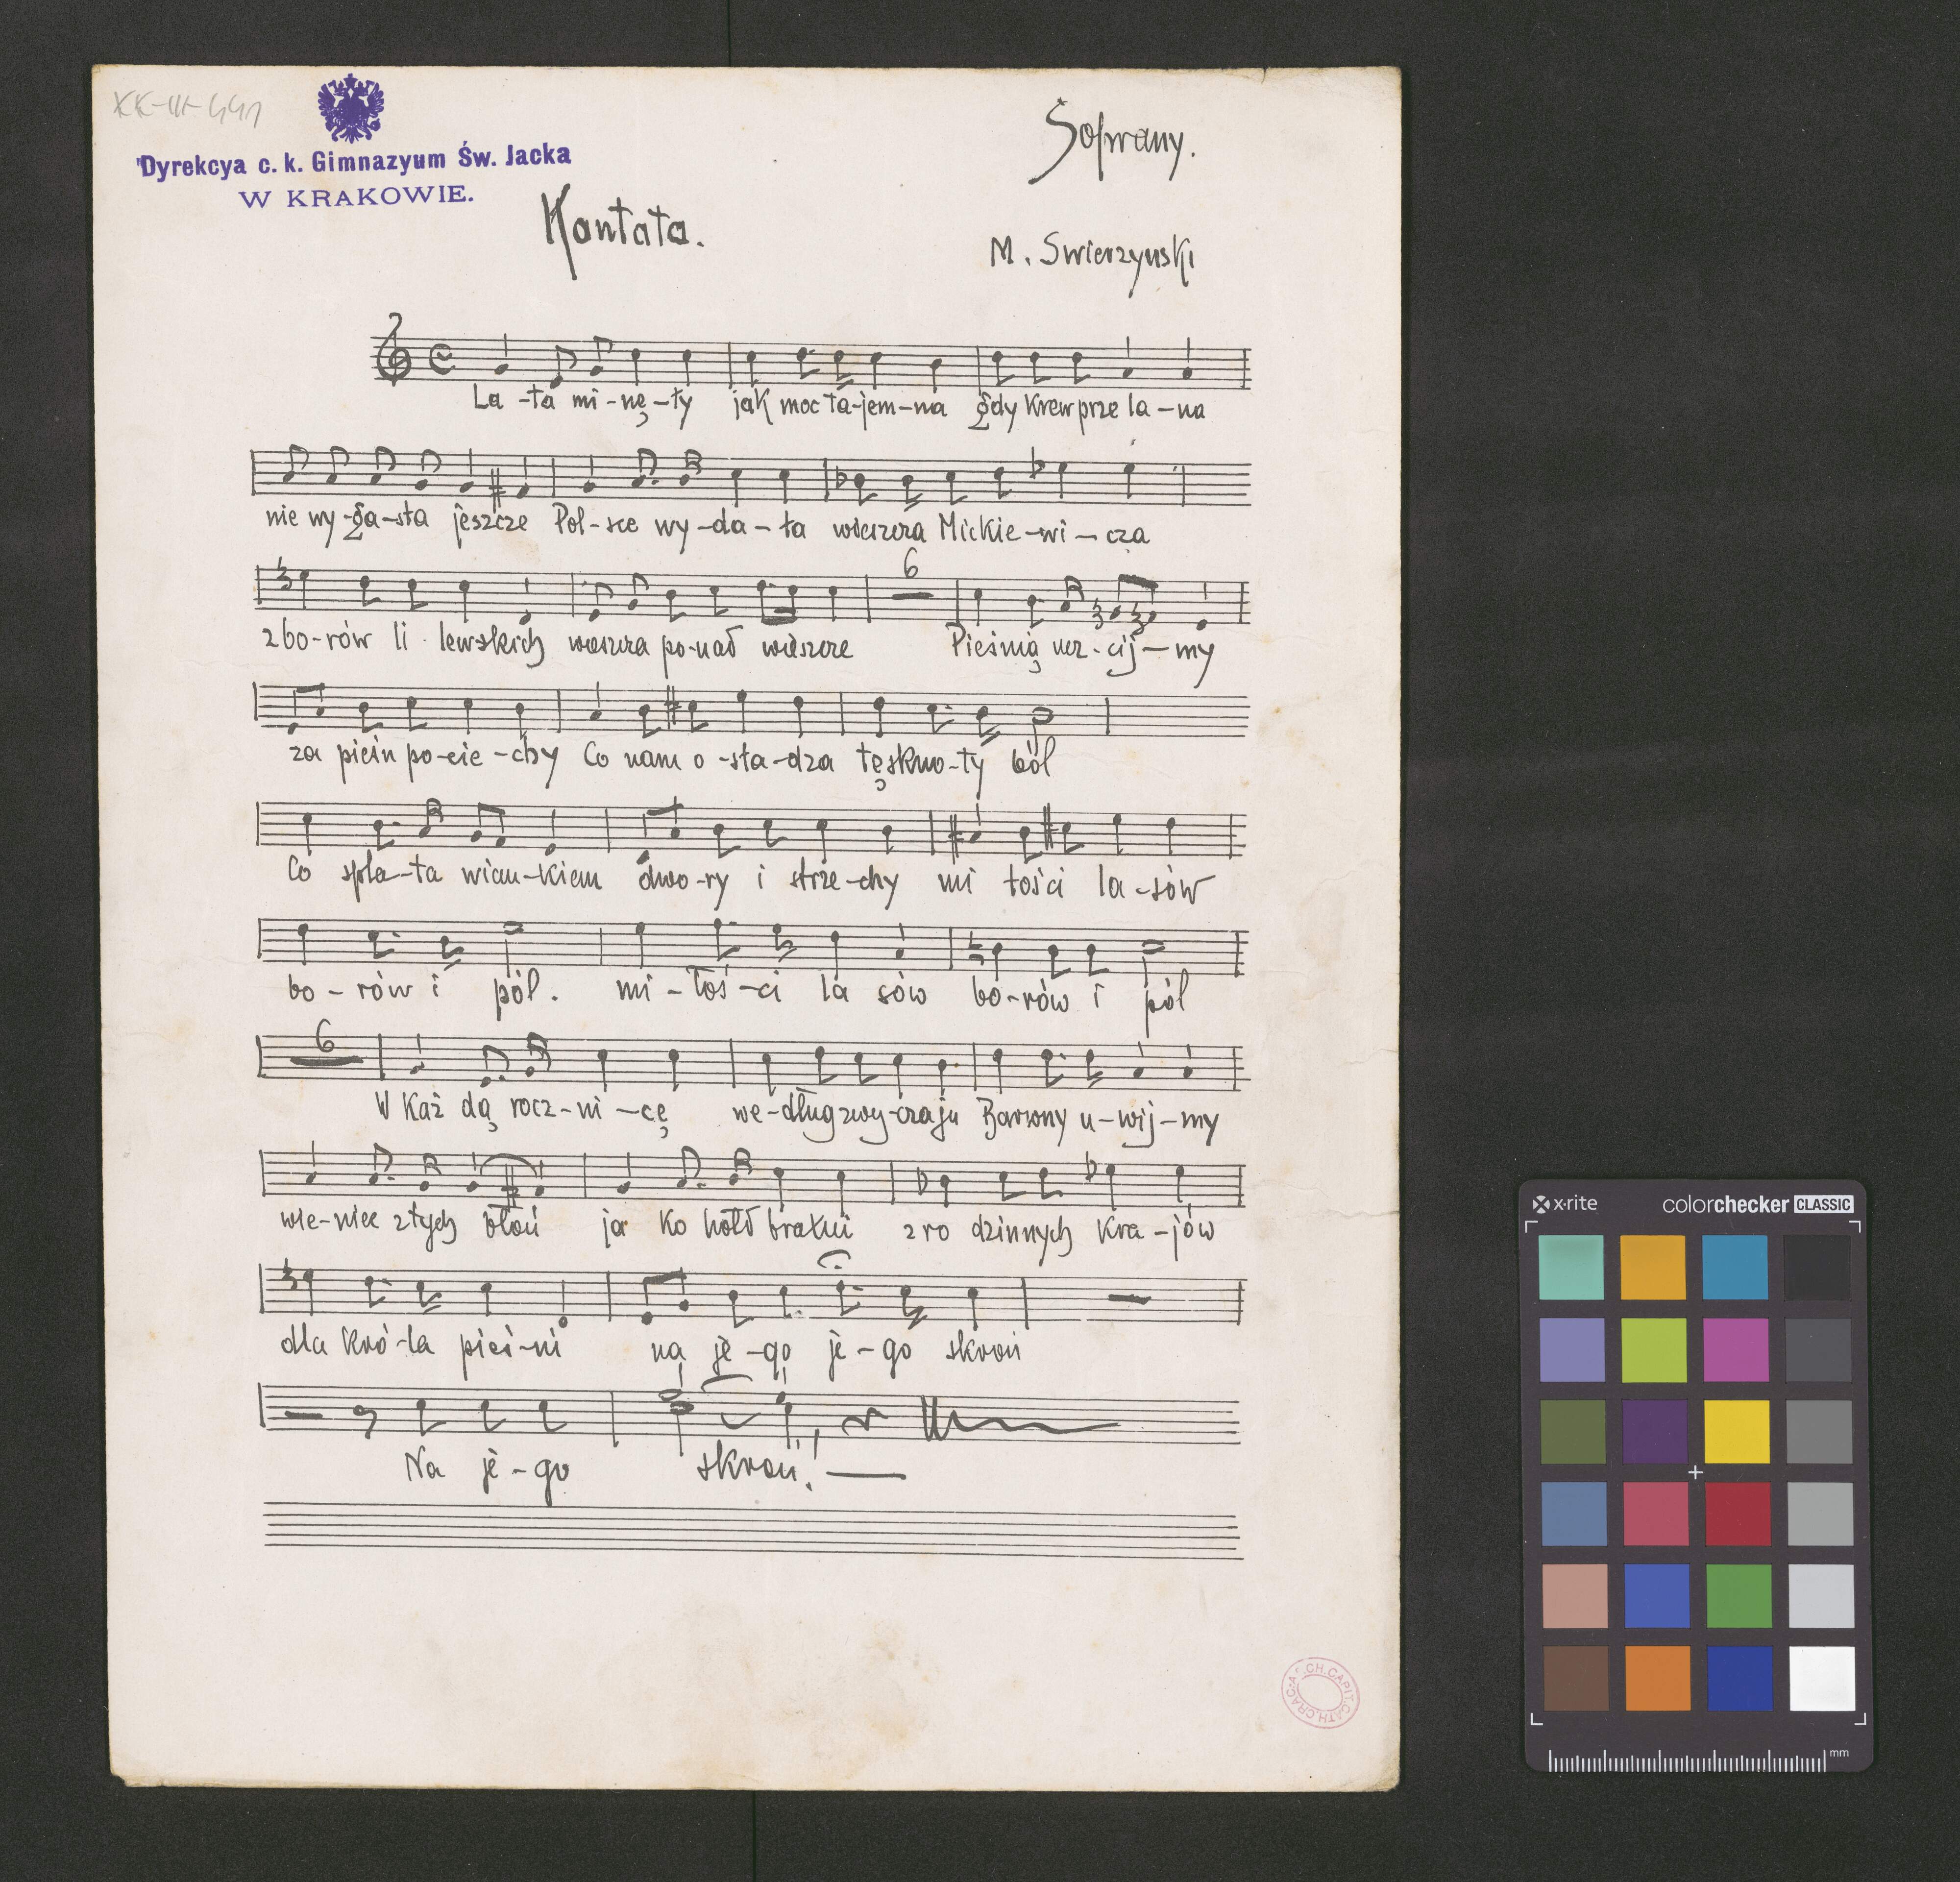 KK-III-441
Dyrekcya c. k. Gimnazyum Św. Jacka
W KRAKOWIE.
Soprany.
Kantata.
M. Swierzynski
La-ta mi-nę-ły jak moc ta-jem-na gdy krew prze la-na
nie wy-ga-sła jeszcze Pol-sce wy-da-ła wieszcza Mickie-wi-cza
z bo-rów li lewskich wieszcza po-nad wieszcze Pieśnią ucz-cij-my
6
za pieśń po-cie-chy Co nam o-sła-dza tęskno-ty ból
Co spla-ta wian-kiem dwo-ry i strze-chy mi łości la-sów
bo-rów i pól. mi-łoś-ci la sów bo-rów i pól
6
W Każ dą rocz-ni-cę we-dług zwy-czaju u-wij-my
wie-niec złych błoń ja ko hołd bratni z ro dzinnych kra-jów
dla kró-la pieś-ni na je-go je-go skroń
Na je-go skroń!
ARCH.CAPIT.CATH.CRAC.
x-rite colorchecker CLASSIC
mm